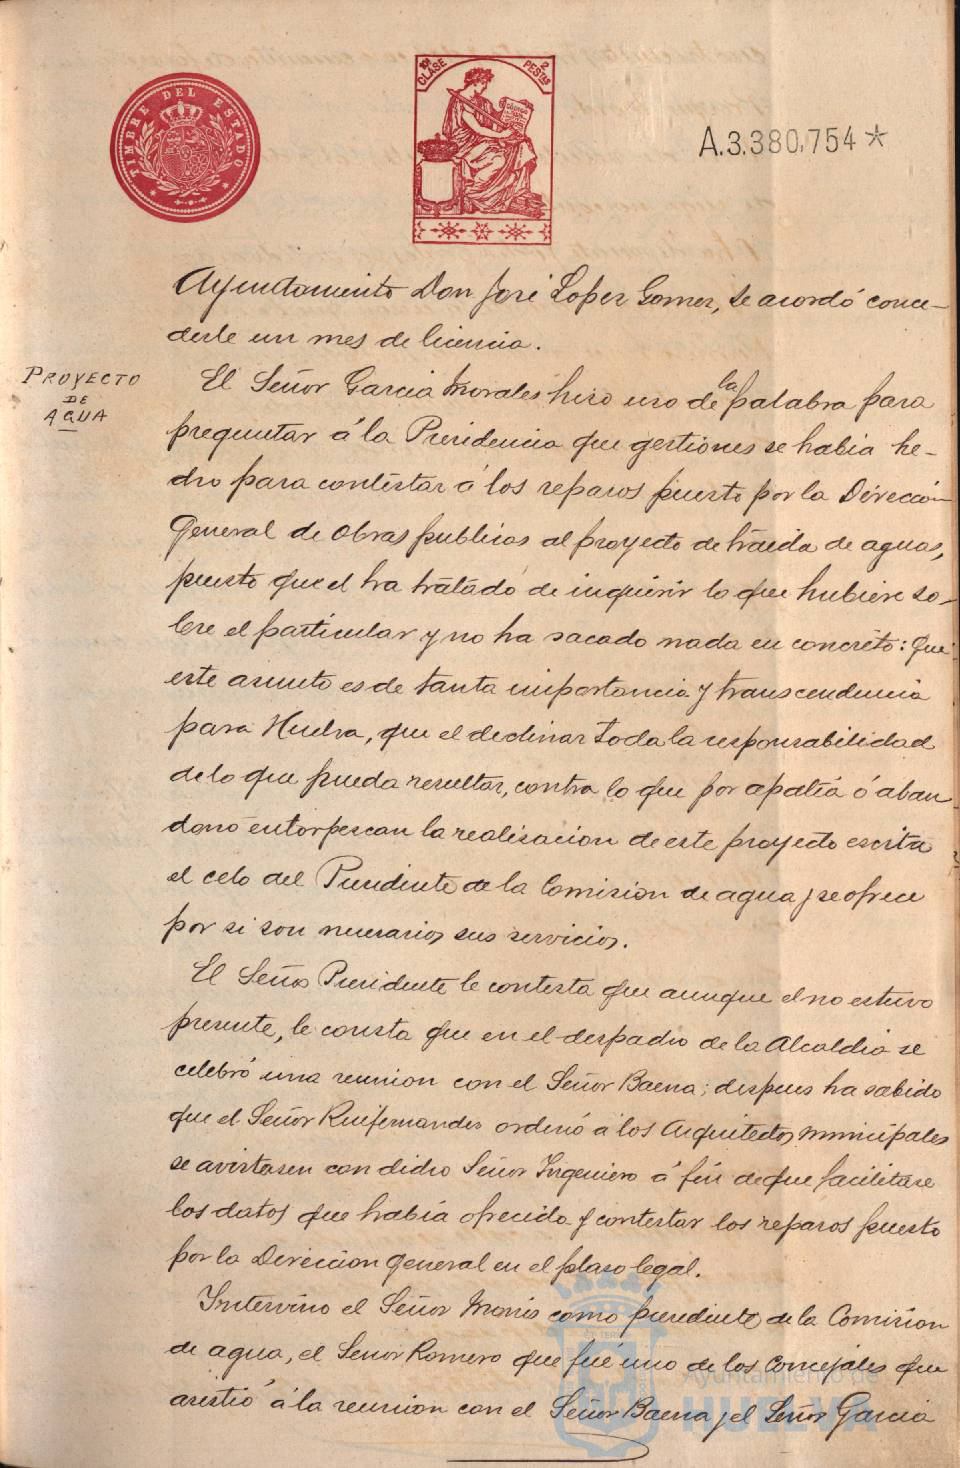 TIMBRE DEL ESTADO
10ª CLASE
2 PESTAS
A.3.380,754*
Ayuntamiento Don José Lopez Gomez, se acordó conce-
derle un mes de licencia.
PROYECTO
DE
AGUA
El Señor Garcia Morales hizo uso de la palabra para
preguntar á la Presidencia que gestiones se habia he-
cho para contestar á los reparos puesto por la Dirección
General de Obras publicas al proyecto de traida de aguas,
puesto que el ha tratado de inquirir lo que hubiere so-
bre el particular y no ha sacado nada en concreto: que
este asunto es de tanta importancia y transcendencia
para Huelva, que el declinar toda la responsabilidad
de lo que pueda resultar, contra lo que por apatia ó aban
dono entorpezcan la realisacion de este proyecto escita
el celo del Presidente de la Comision de agua y se ofrece
por si son necesarios sus servicios.
El Señor Presidente le contesta que aunque el no estuvo
presente, le consta que en el despacho de la Alcaldia se
celebró una reunion con el Señor Baena; despues ha sabido
que el Señor Ruifernandez ordenó á los Arquitectos municipales
se avistasen con dicho Señor Ingeniero á fin de que facilitase
los datos que habia ofrecido y contestar los reparos puesto
por la Direccion general en el plazo legal.
Intervino el Señor Morris como presidente de la Comision
de agua, el Señor Romero que fué uno de los Concejales que
asistió á la reunion con el Señor Baena y el Señor Garcia
Ayuntamiento de
HUELVA